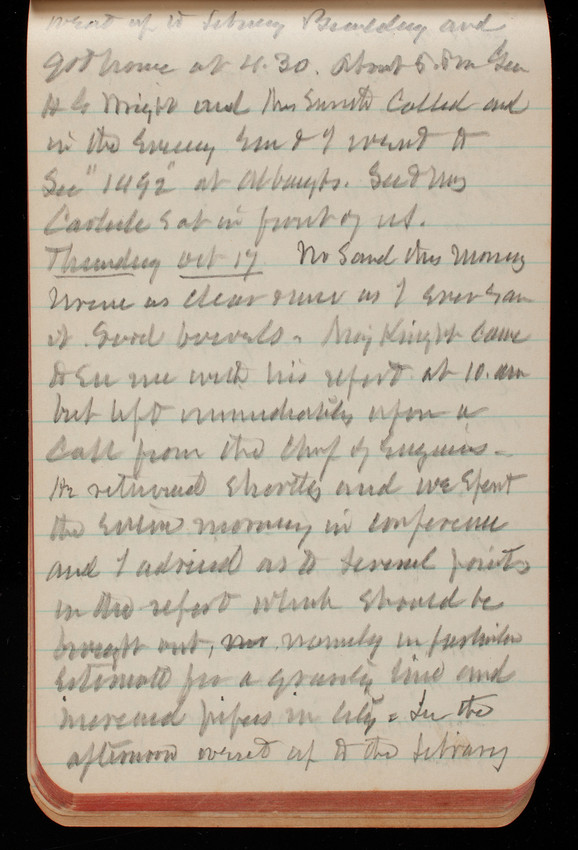 went up to Library Building and
got home at 4.30. About 5. P.m Gen
H G Wright and Mrs Smith Called and
in the Evening Em & I went to
See "1492" at Albaughs. Secd Mrs
Carlisle sat in front of us.
Thursday Oct 17 No Sand this morning
Urine as clear & nice as I ever saw
it. Good bowels. Maj Knight came
to see me with his report at 10. am
but left immediately upon a
Call from the Chief of Engineers.
He returned shortly and we spent
the Entire morning in conference
and I advised as to several points
in the report which should be
brought out, namely in particular
Estimate for a gravity line and
increased pipes in City. In the
afternoon went up to the Library